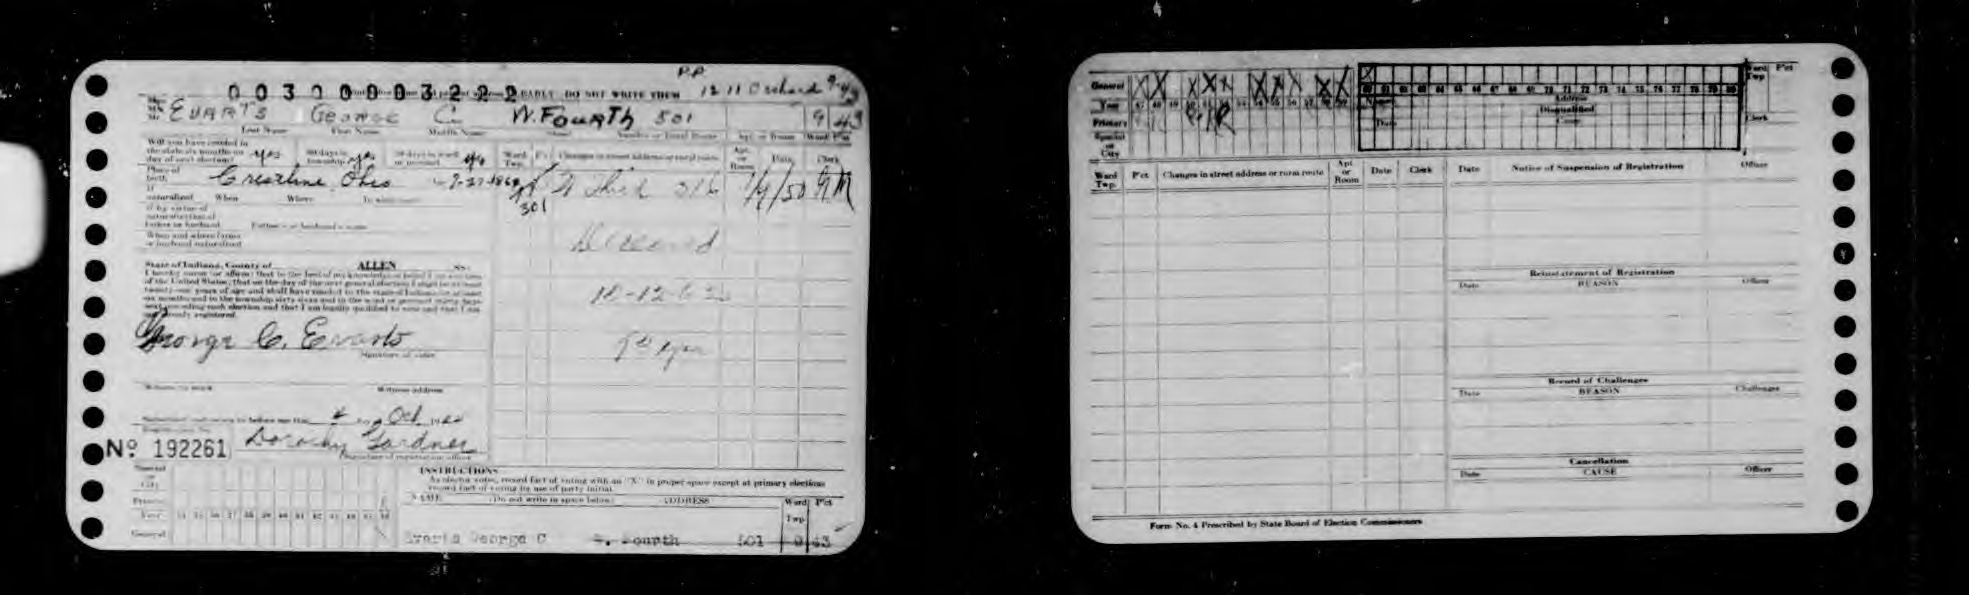 P.P.
003000003222 EARLY DO NOT WRITE THEM 1211 Orchard
EVARTS George C. W. Fourth 501 9 43
Last Name First Name Middle Name Street Number or Rural Route Apt. or Room Ward P'ct
Will you have resided in
the state six months on
day of next election? yes 60 days in township yes 30 days in ward or precinct yes
Ward Twp. P'ct Changes in street address or rural route Apt. or Room Date Clerk
Place of birth Crestline, Ohio
W Third 316 GM
301
If naturalized When Where
If by virtue of
naturalization of
father or husband Father's or husband's name
When and where father
or husband naturalized
Deceased
State of Indiana, County of ALLEN SS:
I hereby swear (or affirm) that to the best of my knowledge or belief I am a citizen
of the United States; that on the day of the next general election I shall be at least
twenty-one years of age and shall have resided in the state of Indiana for at least
six months and in the township sixty days and in the ward or precinct thirty days
next preceding such election and that I am legally qualified to vote and that I am
not already registered.
George C. Evarts
Signature of voter
Witness to mark Witness address
Subscribed and sworn to before me this day Oct.
Registration No.
No 192261 Dorothy Gardner
Signature of registration officer
INSTRUCTIONS
As elector votes, record fact of voting with an "X" in proper space except at primary elections
record fact of voting by use of party initial.
NAME (Do not write in space below) ADDRESS Ward Twp. P'ct
Special or City
Primary
Year
General
Evarts George C W. Fourth 501 9 43
General
Year 47 48 49 50 51 52 53 54 55 56 57 58 59 60 61 62 63 64 65 66 67 68 69 70 71 72 73 74 75 76 77 78 79 80
Primary
Special or City
Name Address
Disqualified
Date Cause Clerk
Ward Twp. P'ct
Ward Twp. P'ct Changes in street address or rural route Apt. or Room Date Clerk
Date Notice of Suspension of Registration Officer
Reinstatement of Registration
Date REASON Officer
Record of Challenges
Date REASON Challenger
Cancellation
Date CAUSE Officer
Form No. 4 Prescribed by State Board of Election Commissioners